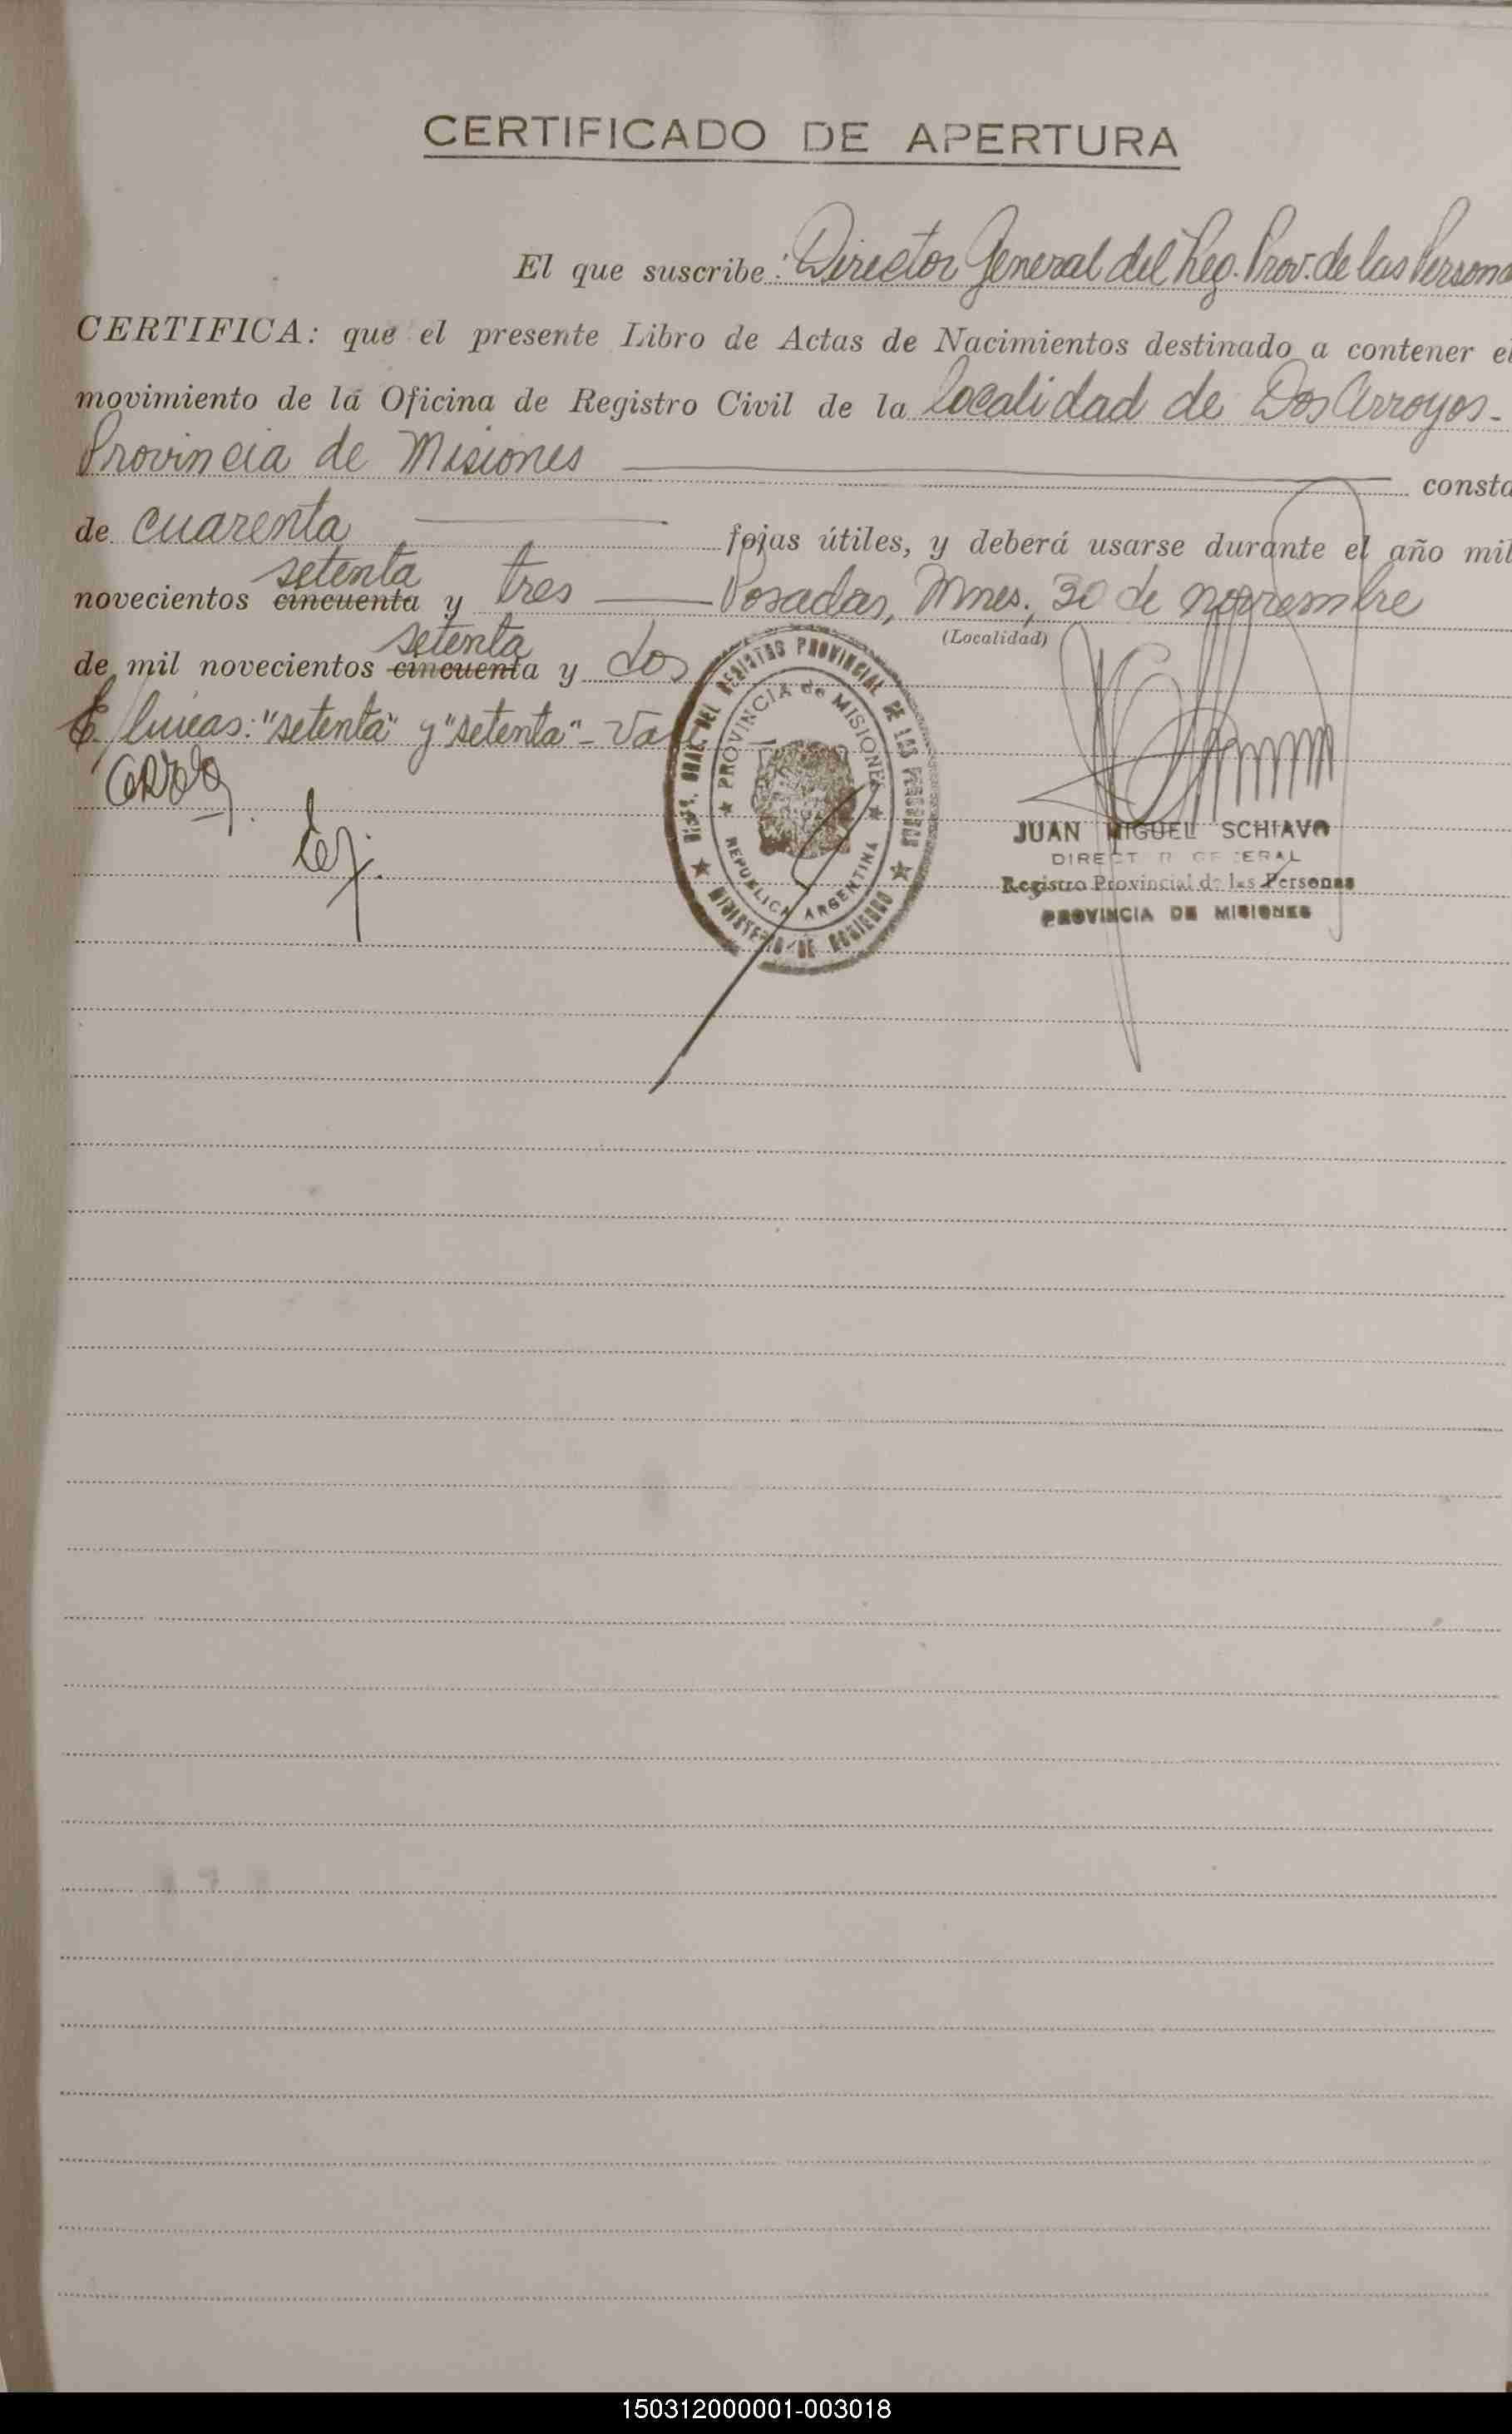 CERTIFICADO DE APERTURA
El que suscribe: Director General del Reg. Prov. de las Persona
CERTIFICA: que el presente Libro de Actas de Nacimientos destinado a contener el
movimiento de la Oficina de Registro Civil de la localidad de Dos Arroyos.
Provincia de Misiones consta
de cuarenta fojas útiles, y deberá usarse durante el año mil
setenta
novecientos cincuenta y tres Posadas, Mnes., 30 de noviembre
(Localidad)
setenta
de mil novecientos cincuenta y dos
E/lineas: "setenta" y "setenta" - Vale
DIREC. GRAL. DEL REGISTRO PROVINCIAL DE LAS PERSONAS
PROVINCIA de MISIONES
REPUBLICA ARGENTINA
MINISTERIO DE GOBIERNO
JUAN MIGUEL SCHIAVO
DIRECTOR GENERAL
Registro Provincial de las Personas
PROVINCIA DE MISIONES
150312000001-003018